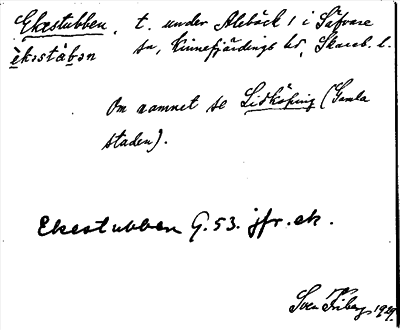 Ekestubben, t. under Alebäck 1 i Säfvare
èkɩstàbɘn sn, Kinnefjärdings hd, Skarab. l.
Om namnet se Lidköping (Gamla
staden).
Ekestubben G. 53. jfr. ek.
Sven Friberg 1929.